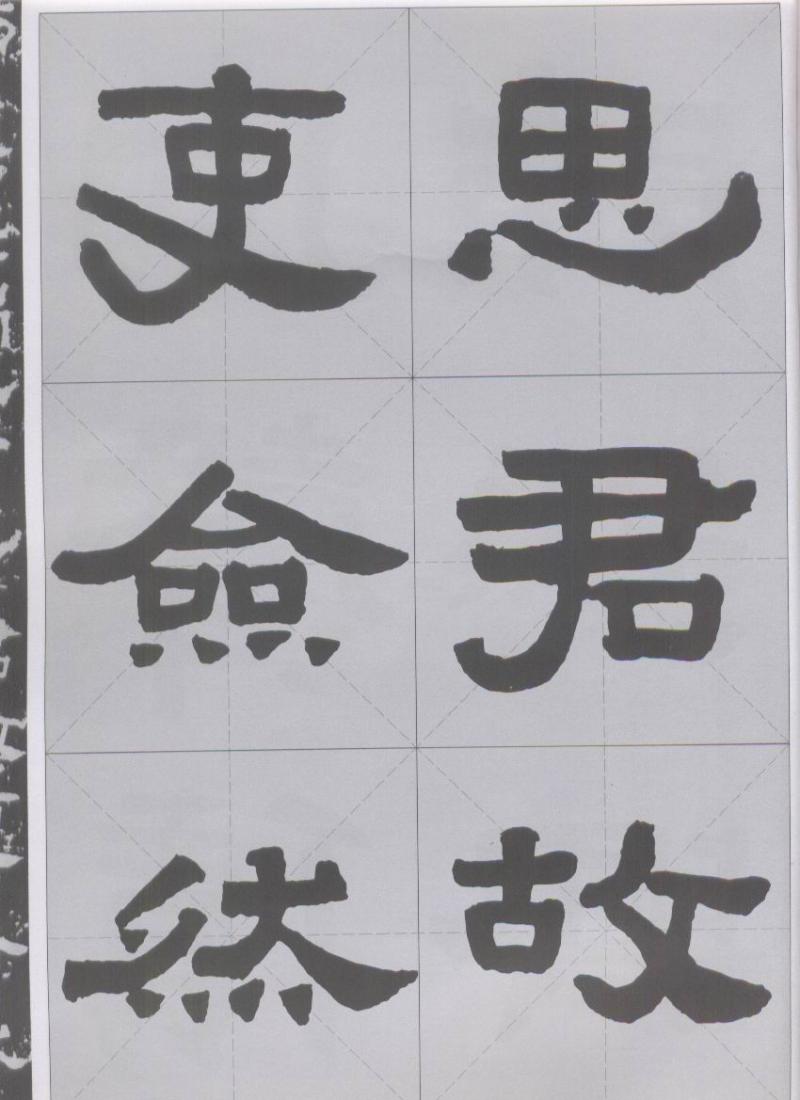 思君故
吏僉然